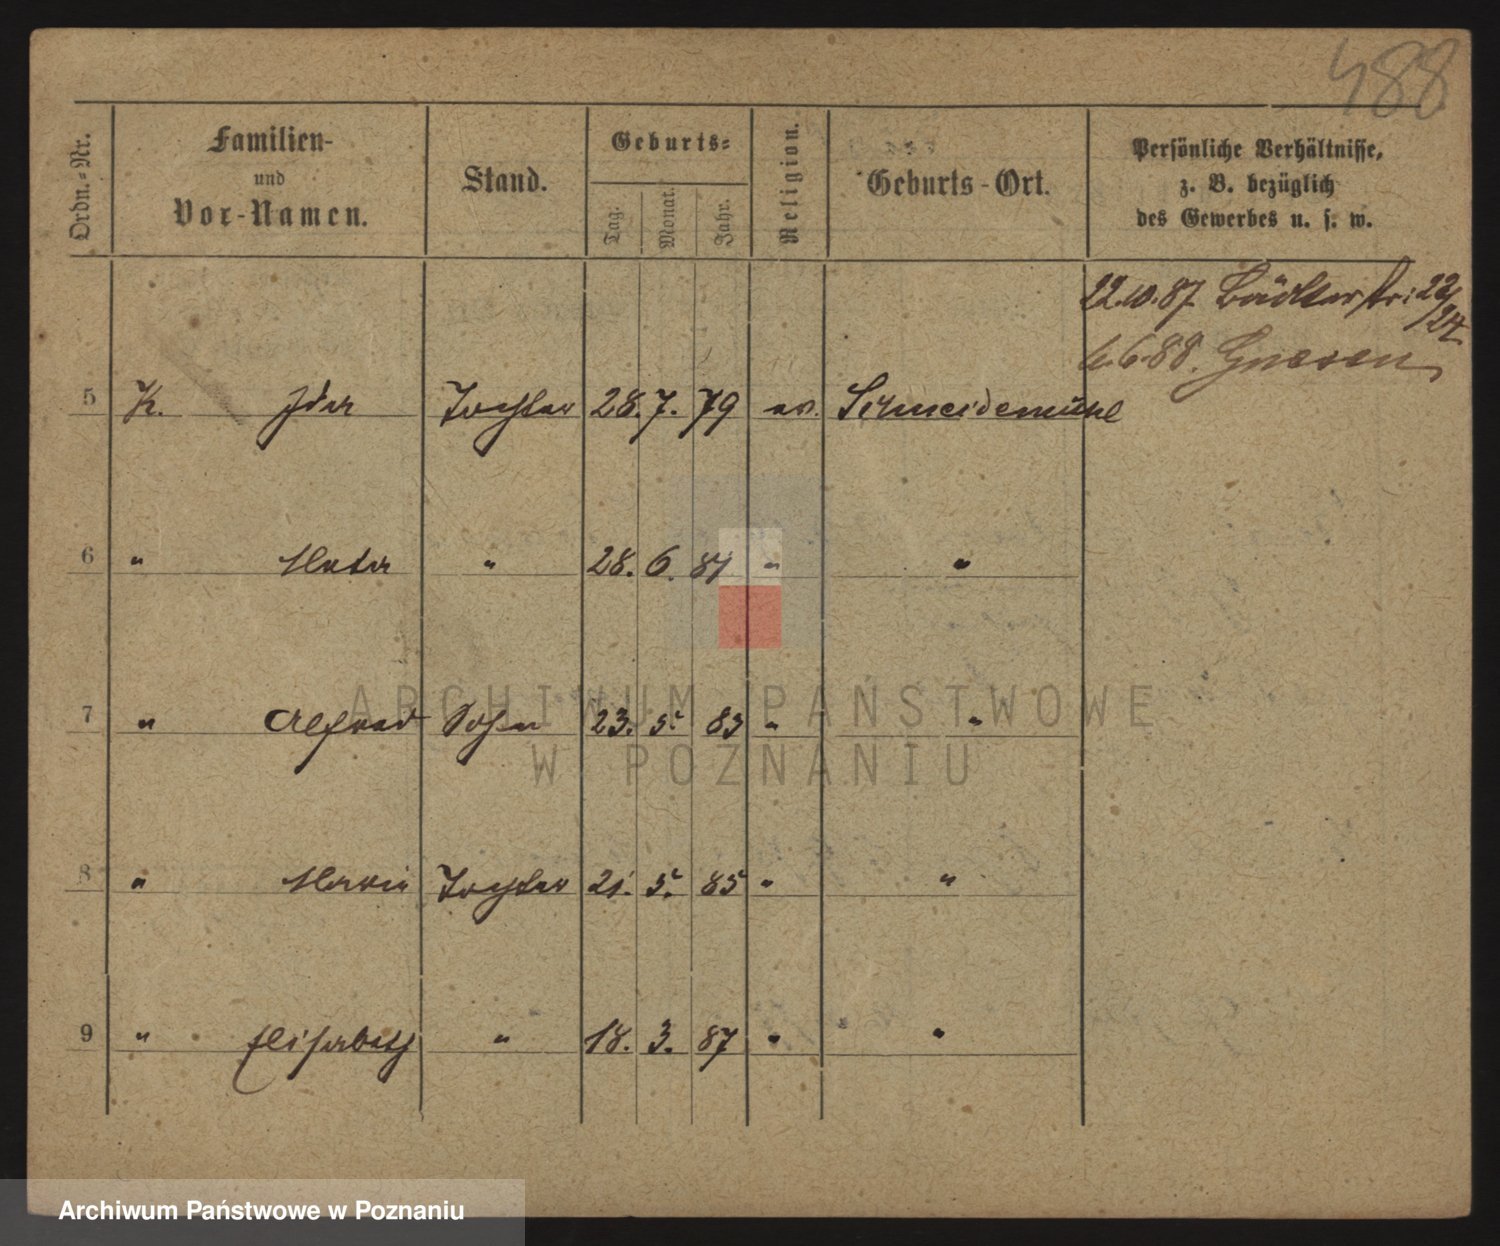 488
Ordn.-Nr. Familien- und Vor-Namen. Stand. Geburts- Tag. Monat. Jahr. Religion. Geburts-Ort. Persönliche Verhältnisse, z. B. bezüglich des Gewerbes u. s. w.
22.10.87. 22/24
6.6.88.
5 K. Ida Tochter 28. 7. 79 ev. Schneidemühl
6 " Meta " 28. 6. 81 " "
7 " Alfred Sohn 23. 5. 83 " "
8 " Maria Tochter 21. 5. 85 " "
9 " Elisabeth " 18. 3. 87 " "
ARCHIWUM PAŃSTWOWE
W POZNANIU
Archiwum Państwowe w Poznaniu